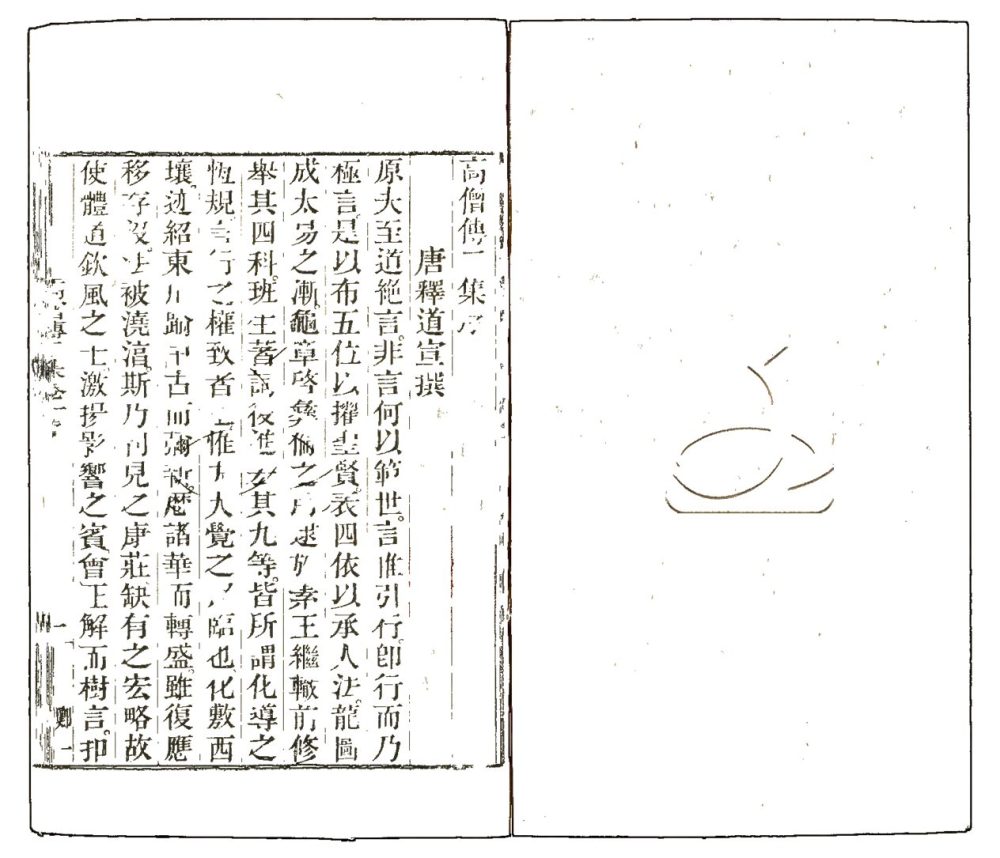 高僧傳二集序
唐釋道宣撰
原夫至道絶言。非言何以範世。言惟引行。卽行而乃
極言。是以布五位以擢聖賢。表四依以承人法。龍圖
成太易之漸。龜章啓彝倫之用。逮於素王繼轍前修
舉其四科。班生著詞後進弘其九等。皆所謂化導之
恆規。言行之權致者也。惟夫大覺之照臨也。化敷西
壤。迹紹東川。踰中古而彌新。歷諸華而轉盛。雖復應
移存沒。法被澆淳。斯乃利見之康莊。缺有之宏略。故
使體道欽風之士。激揚影響之賓。會正解而樹言。扣